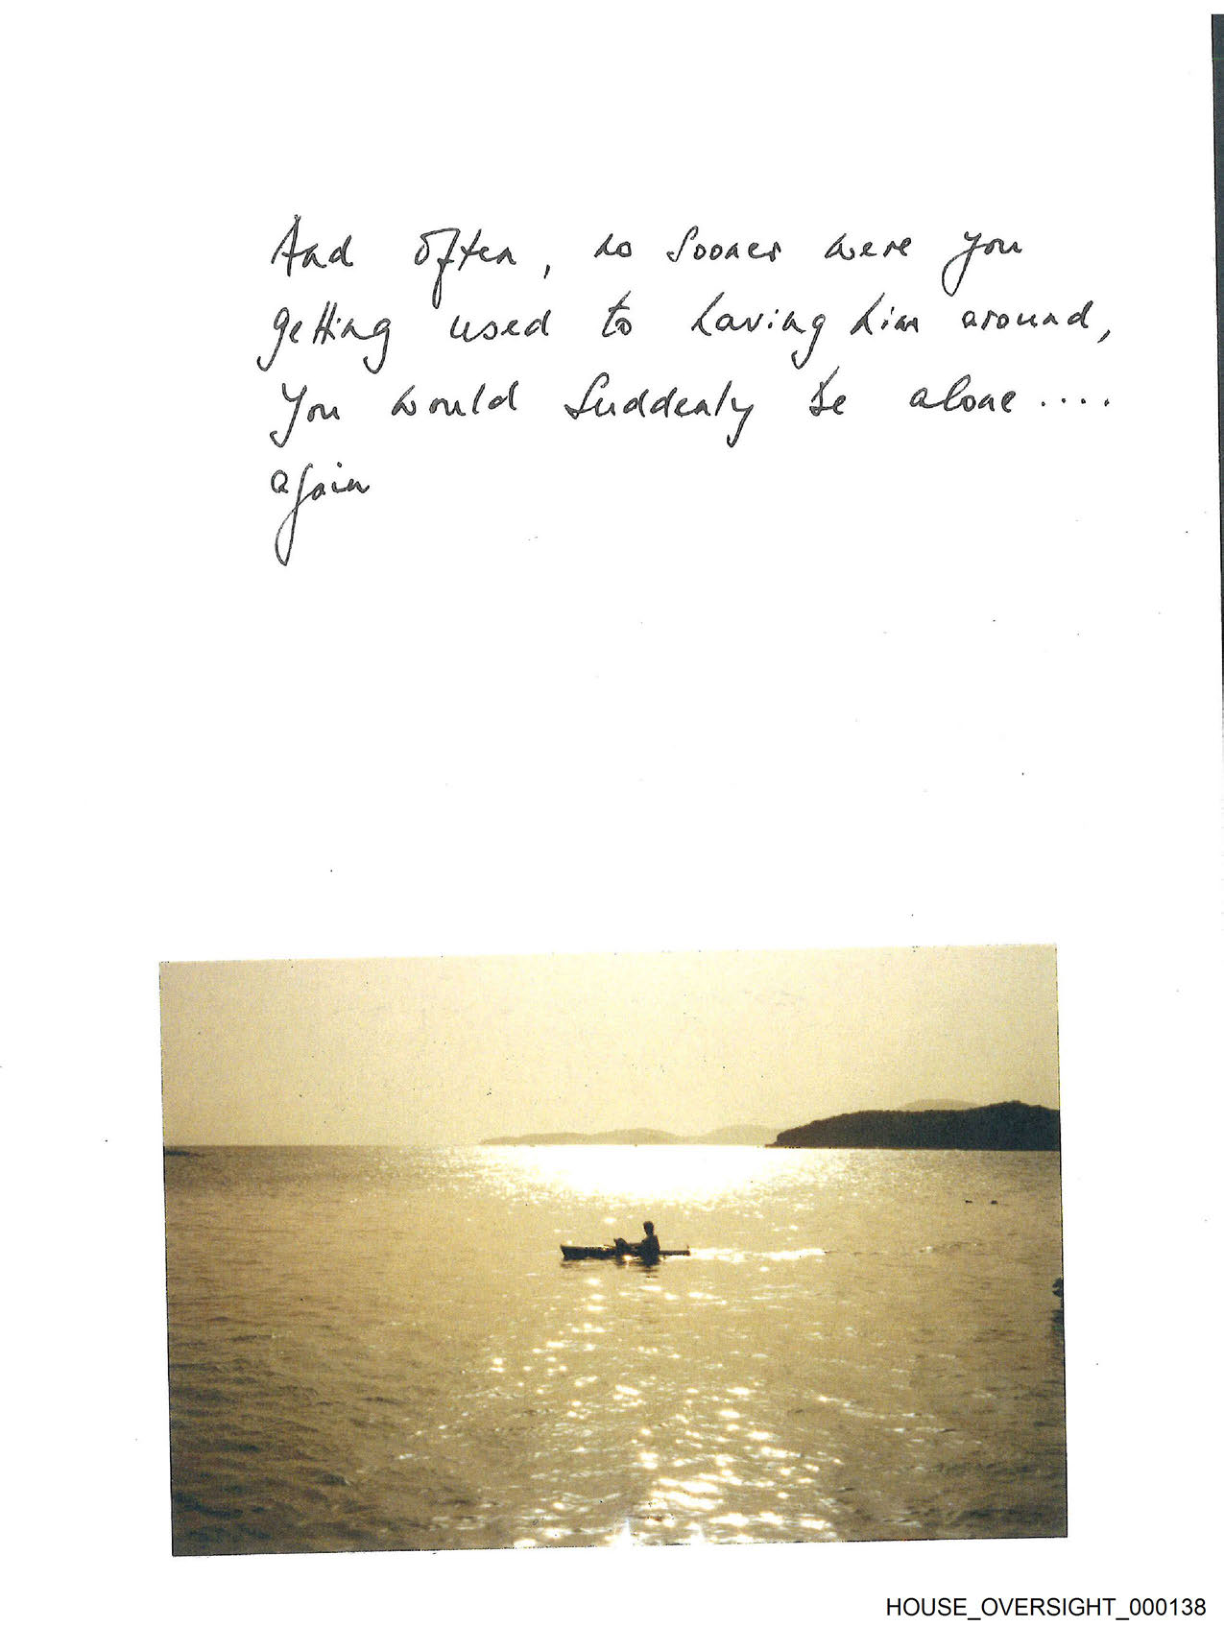 And often, no sooner were you
getting used to having him around,
you would suddenly be alone....
again
HOUSE_OVERSIGHT_000138